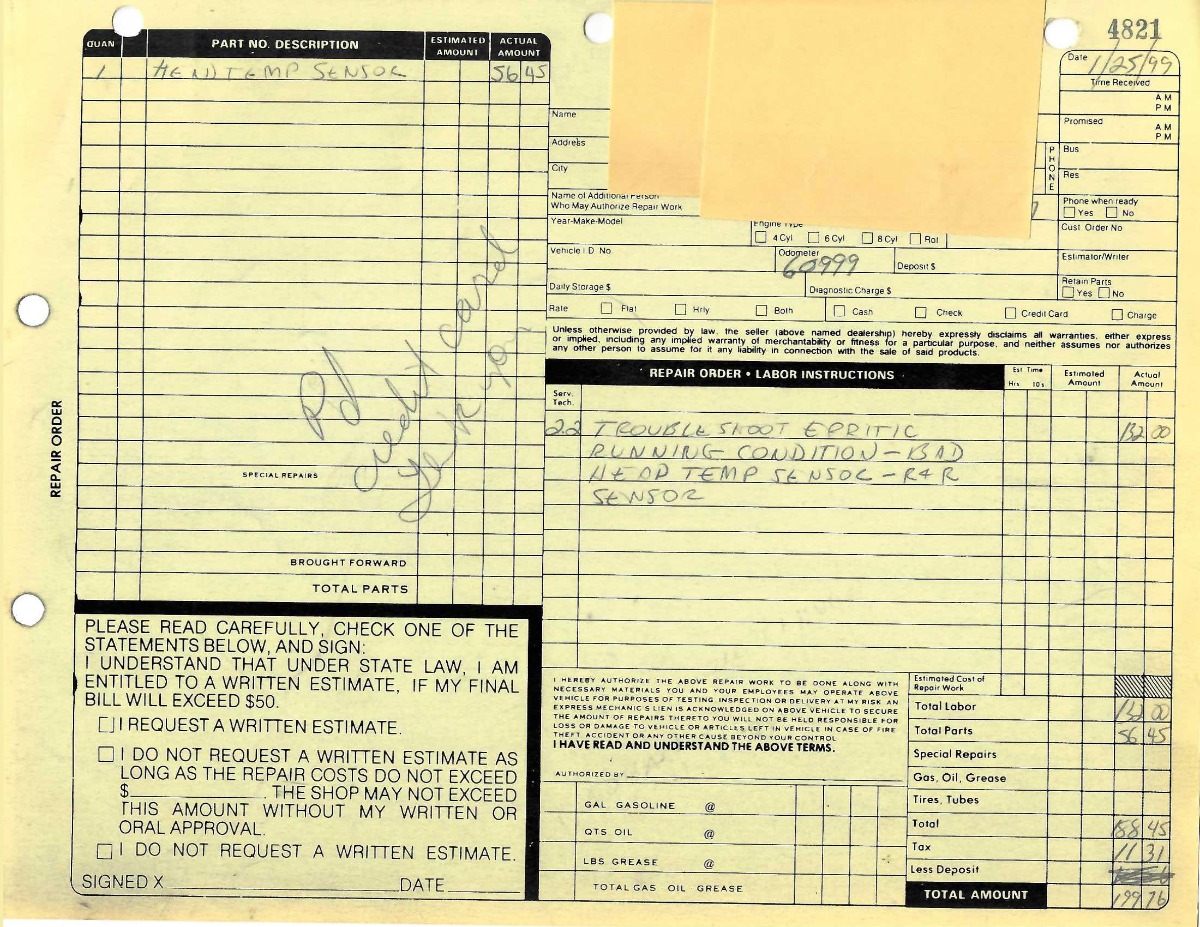 4821
QUAN PART NO. DESCRIPTION ESTIMATED AMOUNT ACTUAL AMOUNT
1 HEAD TEMP SENSOR 56 45
Pd
credit card
SPECIAL REPAIRS
BROUGHT FORWARD
TOTAL PARTS
REPAIR ORDER
PLEASE READ CAREFULLY, CHECK ONE OF THE
STATEMENTS BELOW, AND SIGN:
I UNDERSTAND THAT UNDER STATE LAW, I AM
ENTITLED TO A WRITTEN ESTIMATE, IF MY FINAL
BILL WILL EXCEED $50.
I REQUEST A WRITTEN ESTIMATE.
I DO NOT REQUEST A WRITTEN ESTIMATE AS
LONG AS THE REPAIR COSTS DO NOT EXCEED
$ THE SHOP MAY NOT EXCEED
THIS AMOUNT WITHOUT MY WRITTEN OR
ORAL APPROVAL.
I DO NOT REQUEST A WRITTEN ESTIMATE.
SIGNED X DATE
Date 1/25/99
Time Received
AM
PM
Promised
AM
PM
Name
Address
City
PHONE
Bus
Res
Name of Additional Person
Who May Authorize Repair Work
Phone when ready
Yes No
Year-Make-Model
Engine Type
4 Cyl 6 Cyl 8 Cyl Rot
Cust. Order No
Vehicle I D No.
Odometer
60999
Deposit $
Estimator/Writer
Daily Storage $
Diagnostic Charge $
Retain Parts
Yes No
Rate Flat Hrly Both Cash Check Credit Card Charge
Unless otherwise provided by law, the seller (above named dealership) hereby expressly disclaims all warranties, either express
or implied, including any implied warranty of merchantability or fitness for a particular purpose, and neither assumes nor authorizes
any other person to assume for it any liability in connection with the sale of said products.
REPAIR ORDER • LABOR INSTRUCTIONS
Est Time
Hrs 10s
Estimated Amount
Actual Amount
Serv. Tech.
2.2 TROUBLESHOOT ERRITIC 132 00
RUNNING CONDITION - BAD
HEAD TEMP SENSOR - R+R
SENSOR
I HEREBY AUTHORIZE THE ABOVE REPAIR WORK TO BE DONE ALONG WITH
NECESSARY MATERIALS YOU AND YOUR EMPLOYEES MAY OPERATE ABOVE
VEHICLE FOR PURPOSES OF TESTING INSPECTION OR DELIVERY AT MY RISK AN
EXPRESS MECHANIC'S LIEN IS ACKNOWLEDGED ON ABOVE VEHICLE TO SECURE
THE AMOUNT OF REPAIRS THERETO YOU WILL NOT BE HELD RESPONSIBLE FOR
LOSS OR DAMAGE TO VEHICLE OR ARTICLES LEFT IN VEHICLE IN CASE OF FIRE
THEFT ACCIDENT OR ANY OTHER CAUSE BEYOND YOUR CONTROL
I HAVE READ AND UNDERSTAND THE ABOVE TERMS.
AUTHORIZED BY
GAL GASOLINE @
QTS OIL @
LBS GREASE @
TOTAL GAS OIL GREASE
Estimated Cost of
Repair Work
Total Labor 132 00
Total Parts 56 45
Special Repairs
Gas, Oil, Grease
Tires, Tubes
Total 188 45
Tax 11 31
Less Deposit
TOTAL AMOUNT 199 76